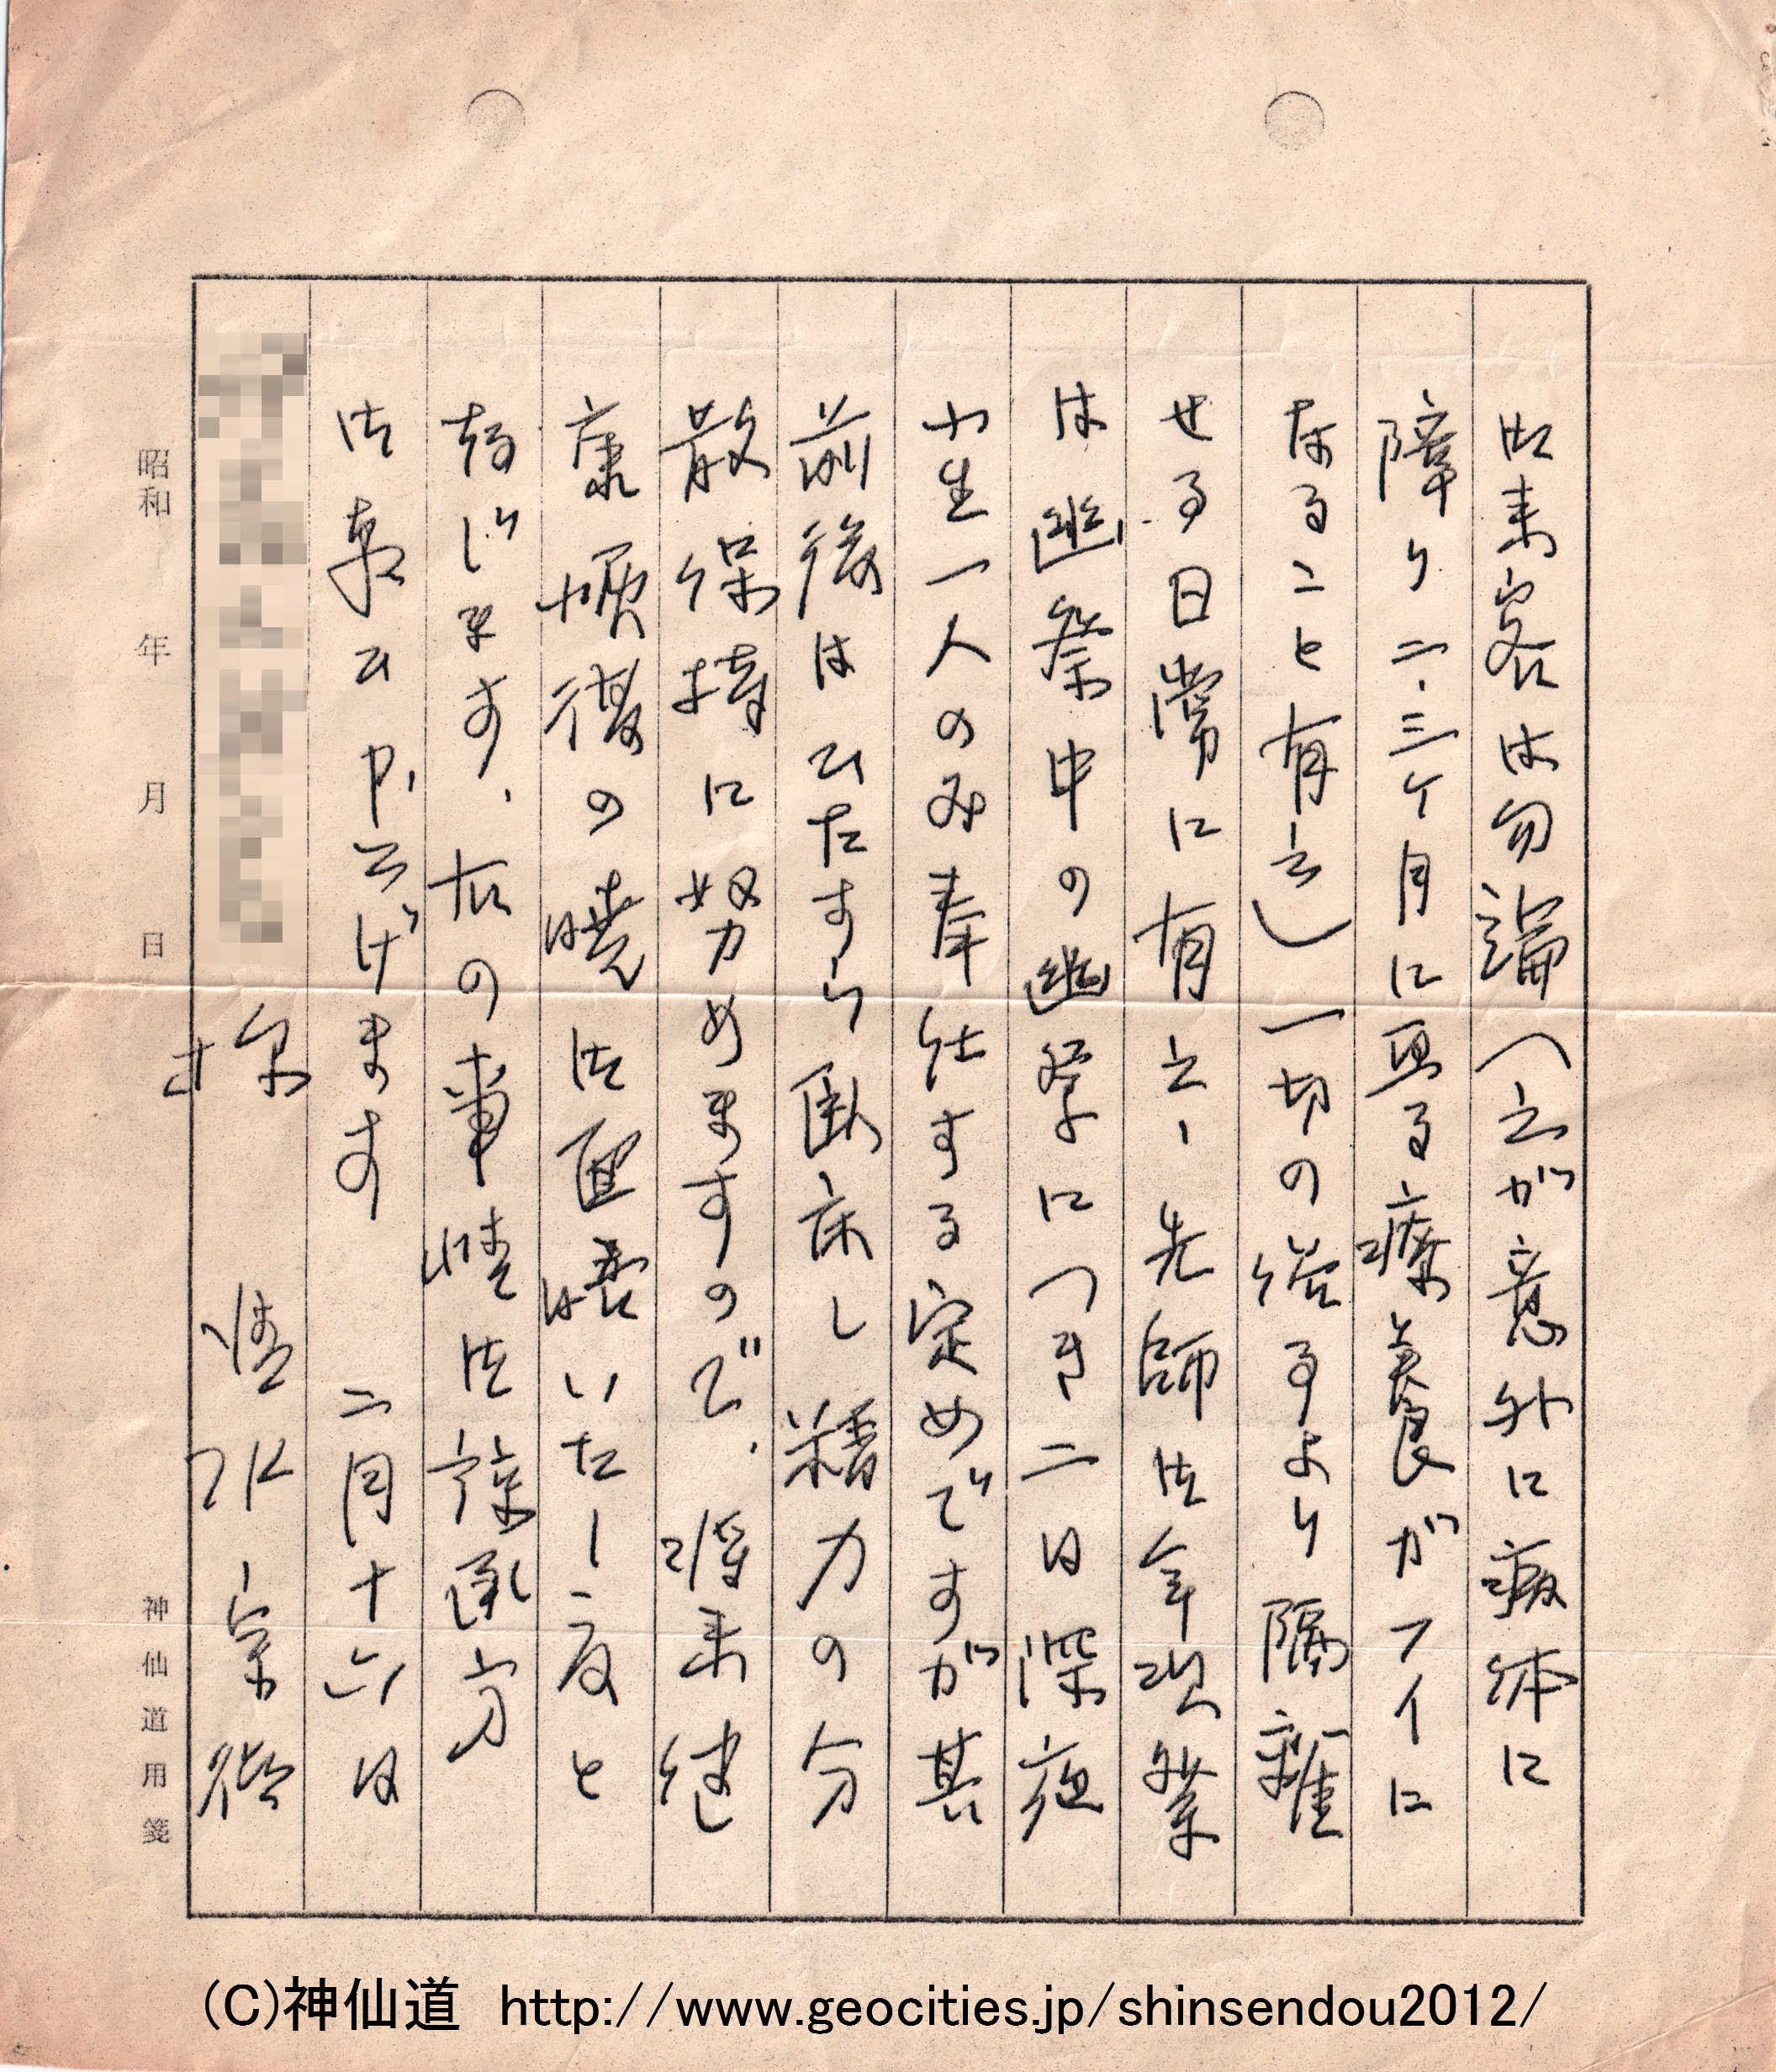 御来客は勿論(之が意外に病体に
障り二、三ケ月に亙る療養がフイに
なること有之)一切の俗事より隔離
せる日常に有之、先師御年現業
は幽祭中の幽祭につき二日深夜
小生一人のみ奉仕する定めですが其
前後はひたすら臥床し精力の分
散保持に努めますので、将来健
康恢復の暁御面晤いたし度と
存じます、右の事情御諒承方
御願ひ申上げます 二月十六日
様 清水宗徳
昭和 年 月 日 神仙道用箋
(C)神仙道 http://www.geocities.jp/shinsendou2012/